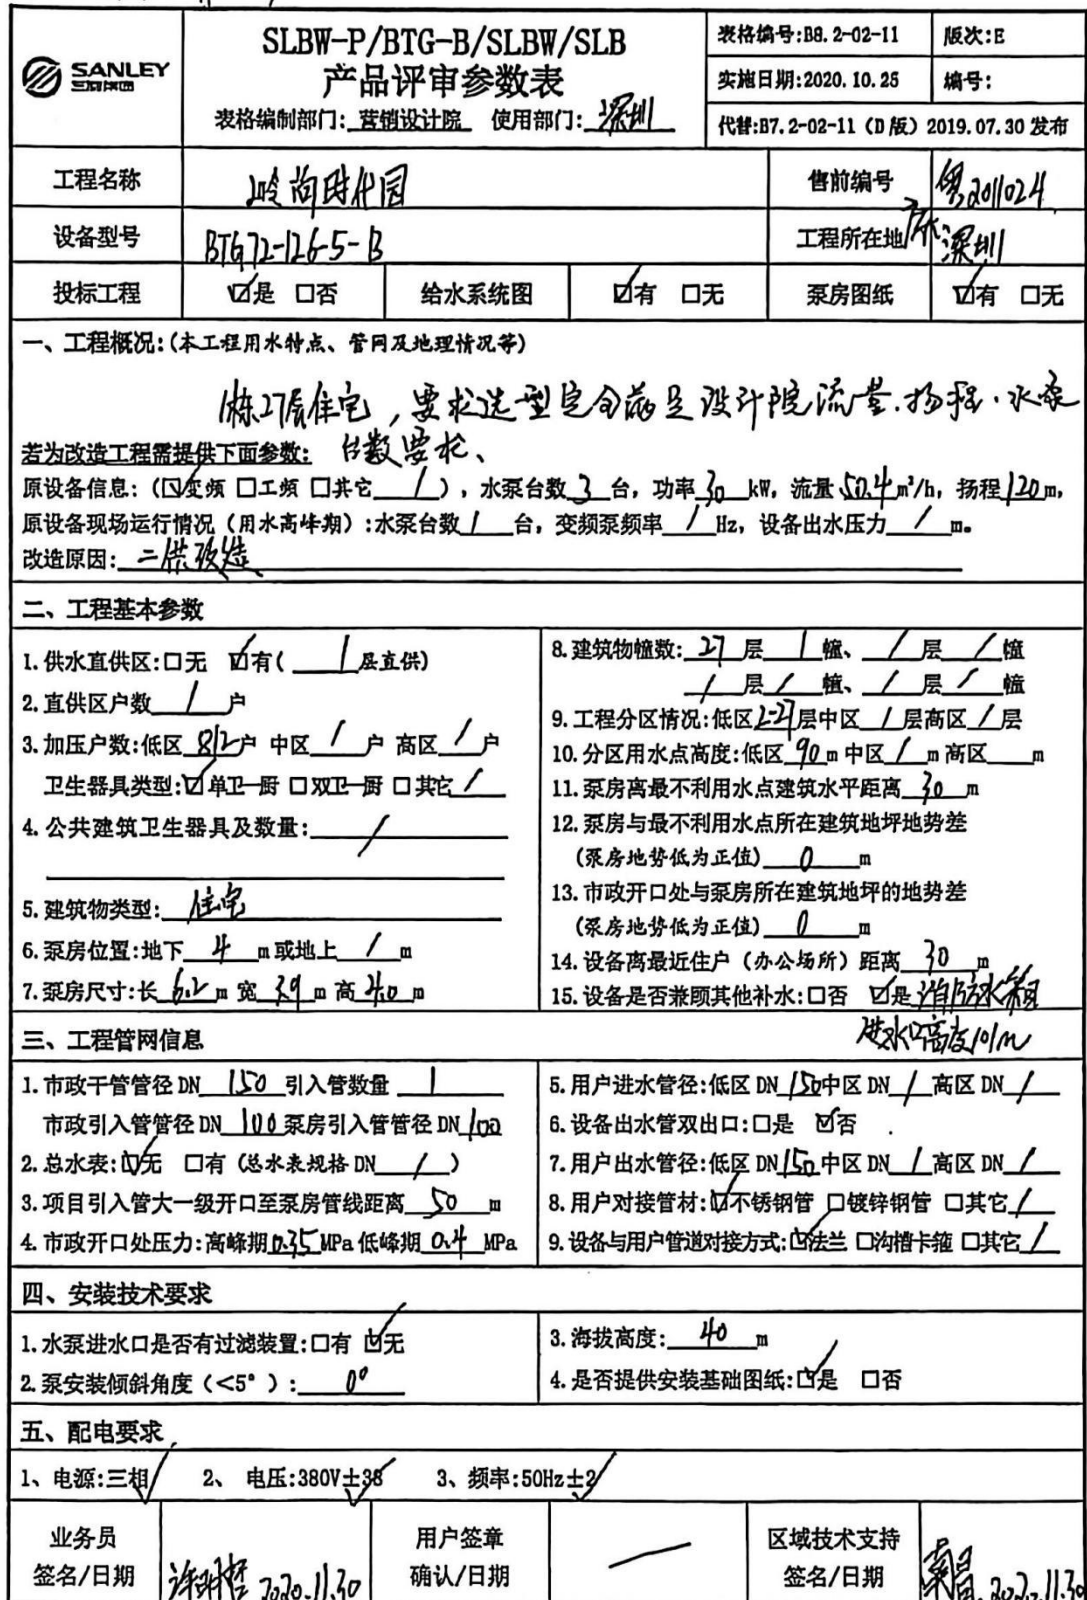 SANLEY
三利集团
SLBW-P/BTG-B/SLBW/SLB
产品评审参数表
表格编制部门:营销设计院 使用部门:深圳
表格编号:B8.2-02-11 版次:E
实施日期:2020.10.25 编号:
代替:B7.2-02-11(D版)2019.07.30发布
工程名称 尚时代园 售前编号 2011024
设备型号 BTG72-126-5-B 工程所在地 广东深圳
投标工程 ☑是 □否 给水系统图 ☑有 □无 泵房图纸 ☑有 □无
一、工程概况:(本工程用水特点、管网及地理情况等)
1栋27层住宅,要求选型完全满足设计院流量、扬程、水泵
台数要求、
若为改造工程需提供下面参数:
原设备信息:(☑变频 □工频 □其它 / ),水泵台数 3 台,功率 30 kW,流量 50.4 m³/h,扬程 120 m,
原设备现场运行情况(用水高峰期):水泵台数 / 台,变频泵频率 / Hz,设备出水压力 / m。
改造原因:二供改造
二、工程基本参数
1.供水直供区:□无 ☑有( 1 层直供)
2.直供区户数 / 户
3.加压户数:低区 812 户 中区 / 户 高区 / 户
卫生器具类型:☑单卫一厨 □双卫一厨 □其它 /
4.公共建筑卫生器具及数量: /
5.建筑物类型:住宅
6.泵房位置:地下 4 m或地上 / m
7.泵房尺寸:长 6.2 m 宽 3.9 m 高 4.0 m
8.建筑物幢数: 27 层 1 幢、 / 层 / 幢
/ 层 / 幢、 / 层 / 幢
9.工程分区情况:低区 2-27 层中区 / 层高区 / 层
10.分区用水点高度:低区 90 m 中区 / m 高区 m
11.泵房离最不利用水点建筑水平距离 30 m
12.泵房与最不利用水点所在建筑地坪地势差
(泵房地势低为正值) 0 m
13.市政开口处与泵房所在建筑地坪的地势差
(泵房地势低为正值) 0 m
14.设备离最近住户(办公场所)距离 30 m
15.设备是否兼顾其他补水:□否 ☑是 消防水箱
进水口高度101m
三、工程管网信息
1.市政干管管径 DN 150 引入管数量 1
市政引入管管径 DN 100 泵房引入管管径 DN 100
2.总水表:☑无 □有(总水表规格 DN / )
3.项目引入管大一级开口至泵房管线距离 50 m
4.市政开口处压力:高峰期 0.35 MPa 低峰期 0.4 MPa
5.用户进水管径:低区 DN 150 中区 DN / 高区 DN /
6.设备出水管双出口:□是 ☑否
7.用户出水管径:低区 DN 150 中区 DN / 高区 DN /
8.用户对接管材:☑不锈钢管 □镀锌钢管 □其它 /
9.设备与用户管道对接方式:☑法兰 □沟槽卡箍 □其它 /
四、安装技术要求
1.水泵进水口是否有过滤装置:□有 ☑无
2.泵安装倾斜角度(<5°): 0°
3.海拔高度: 40 m
4.是否提供安装基础图纸:☑是 □否
五、配电要求
1、电源:三相 2、 电压:380V±38 3、频率:50Hz±2
业务员
签名/日期 2020.11.30
用户签章
确认/日期
区域技术支持
签名/日期 2020.11.30